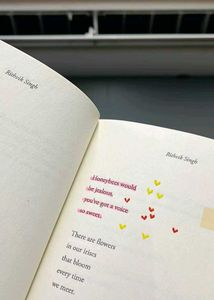 Rithvik Singh
Rithvik Singh
Honeybees would
be jealous,
you've got a voice
so sweet.
There are flowers
in our irises
that bloom
every time
we meet.